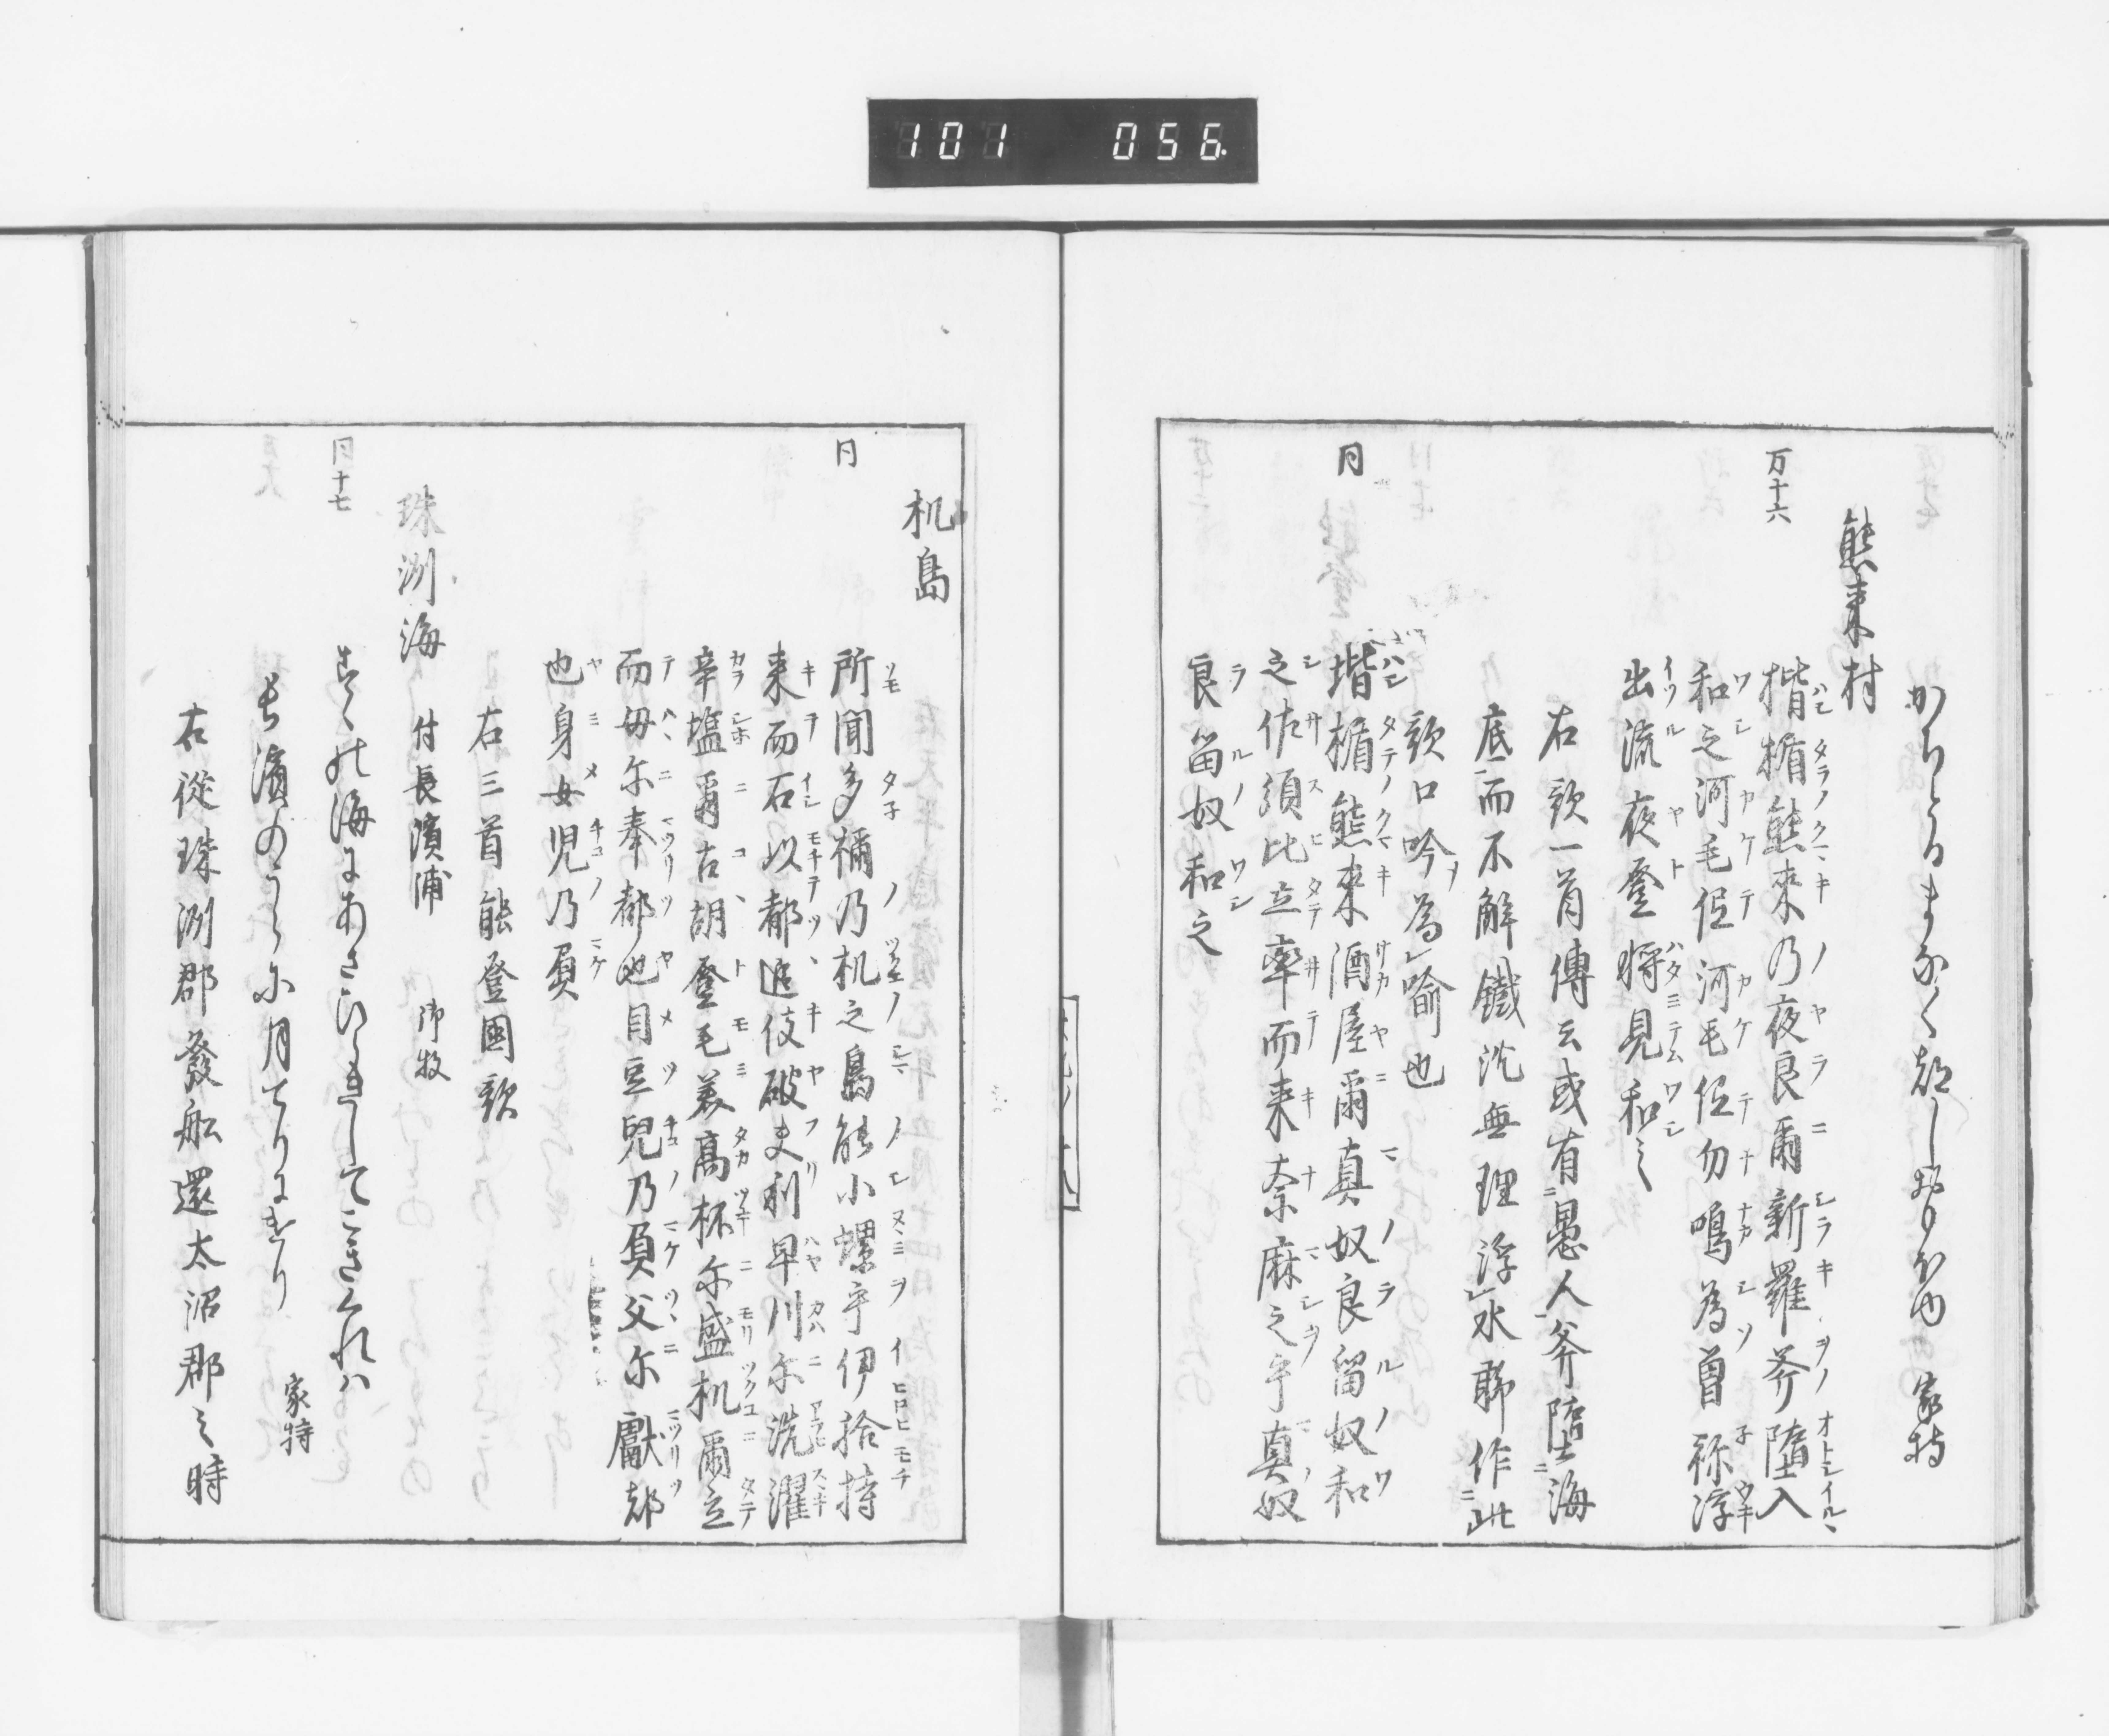 101 056
かちとるまなく都しおもほゆ 家持
熊来村
万十六
揩楯熊來乃夜良爾新羅斧墮入
和之河毛侄河毛侄勿鳴為曽祢浮
出流夜登将見和之
右歌一首傳云或有愚人斧墮海
底而不解鐵沈無理浮水聊作此
歌口吟為喩也
同
揩楯熊來酒屋爾真奴良留奴和
之佐須比立率而来奈麻之乎真奴
良留奴和之
机島
同
所聞多祢乃机之島能小螺乎伊拾持
来而石以都追伎破夫利早川尓洗濯
辛塩爾古胡登毛美高杯尓盛机爾立
而毋尓奉都也目豆兒乃負父尓獻都
也身女児乃負
右三首能登國歌
珠洲海 付長濱浦 御牧
同十七
すゝの海にあさひらきしてこきくれハ
長濱のうらに月てりにけり 家持
右從珠洲郡發舩還太沼郡之時